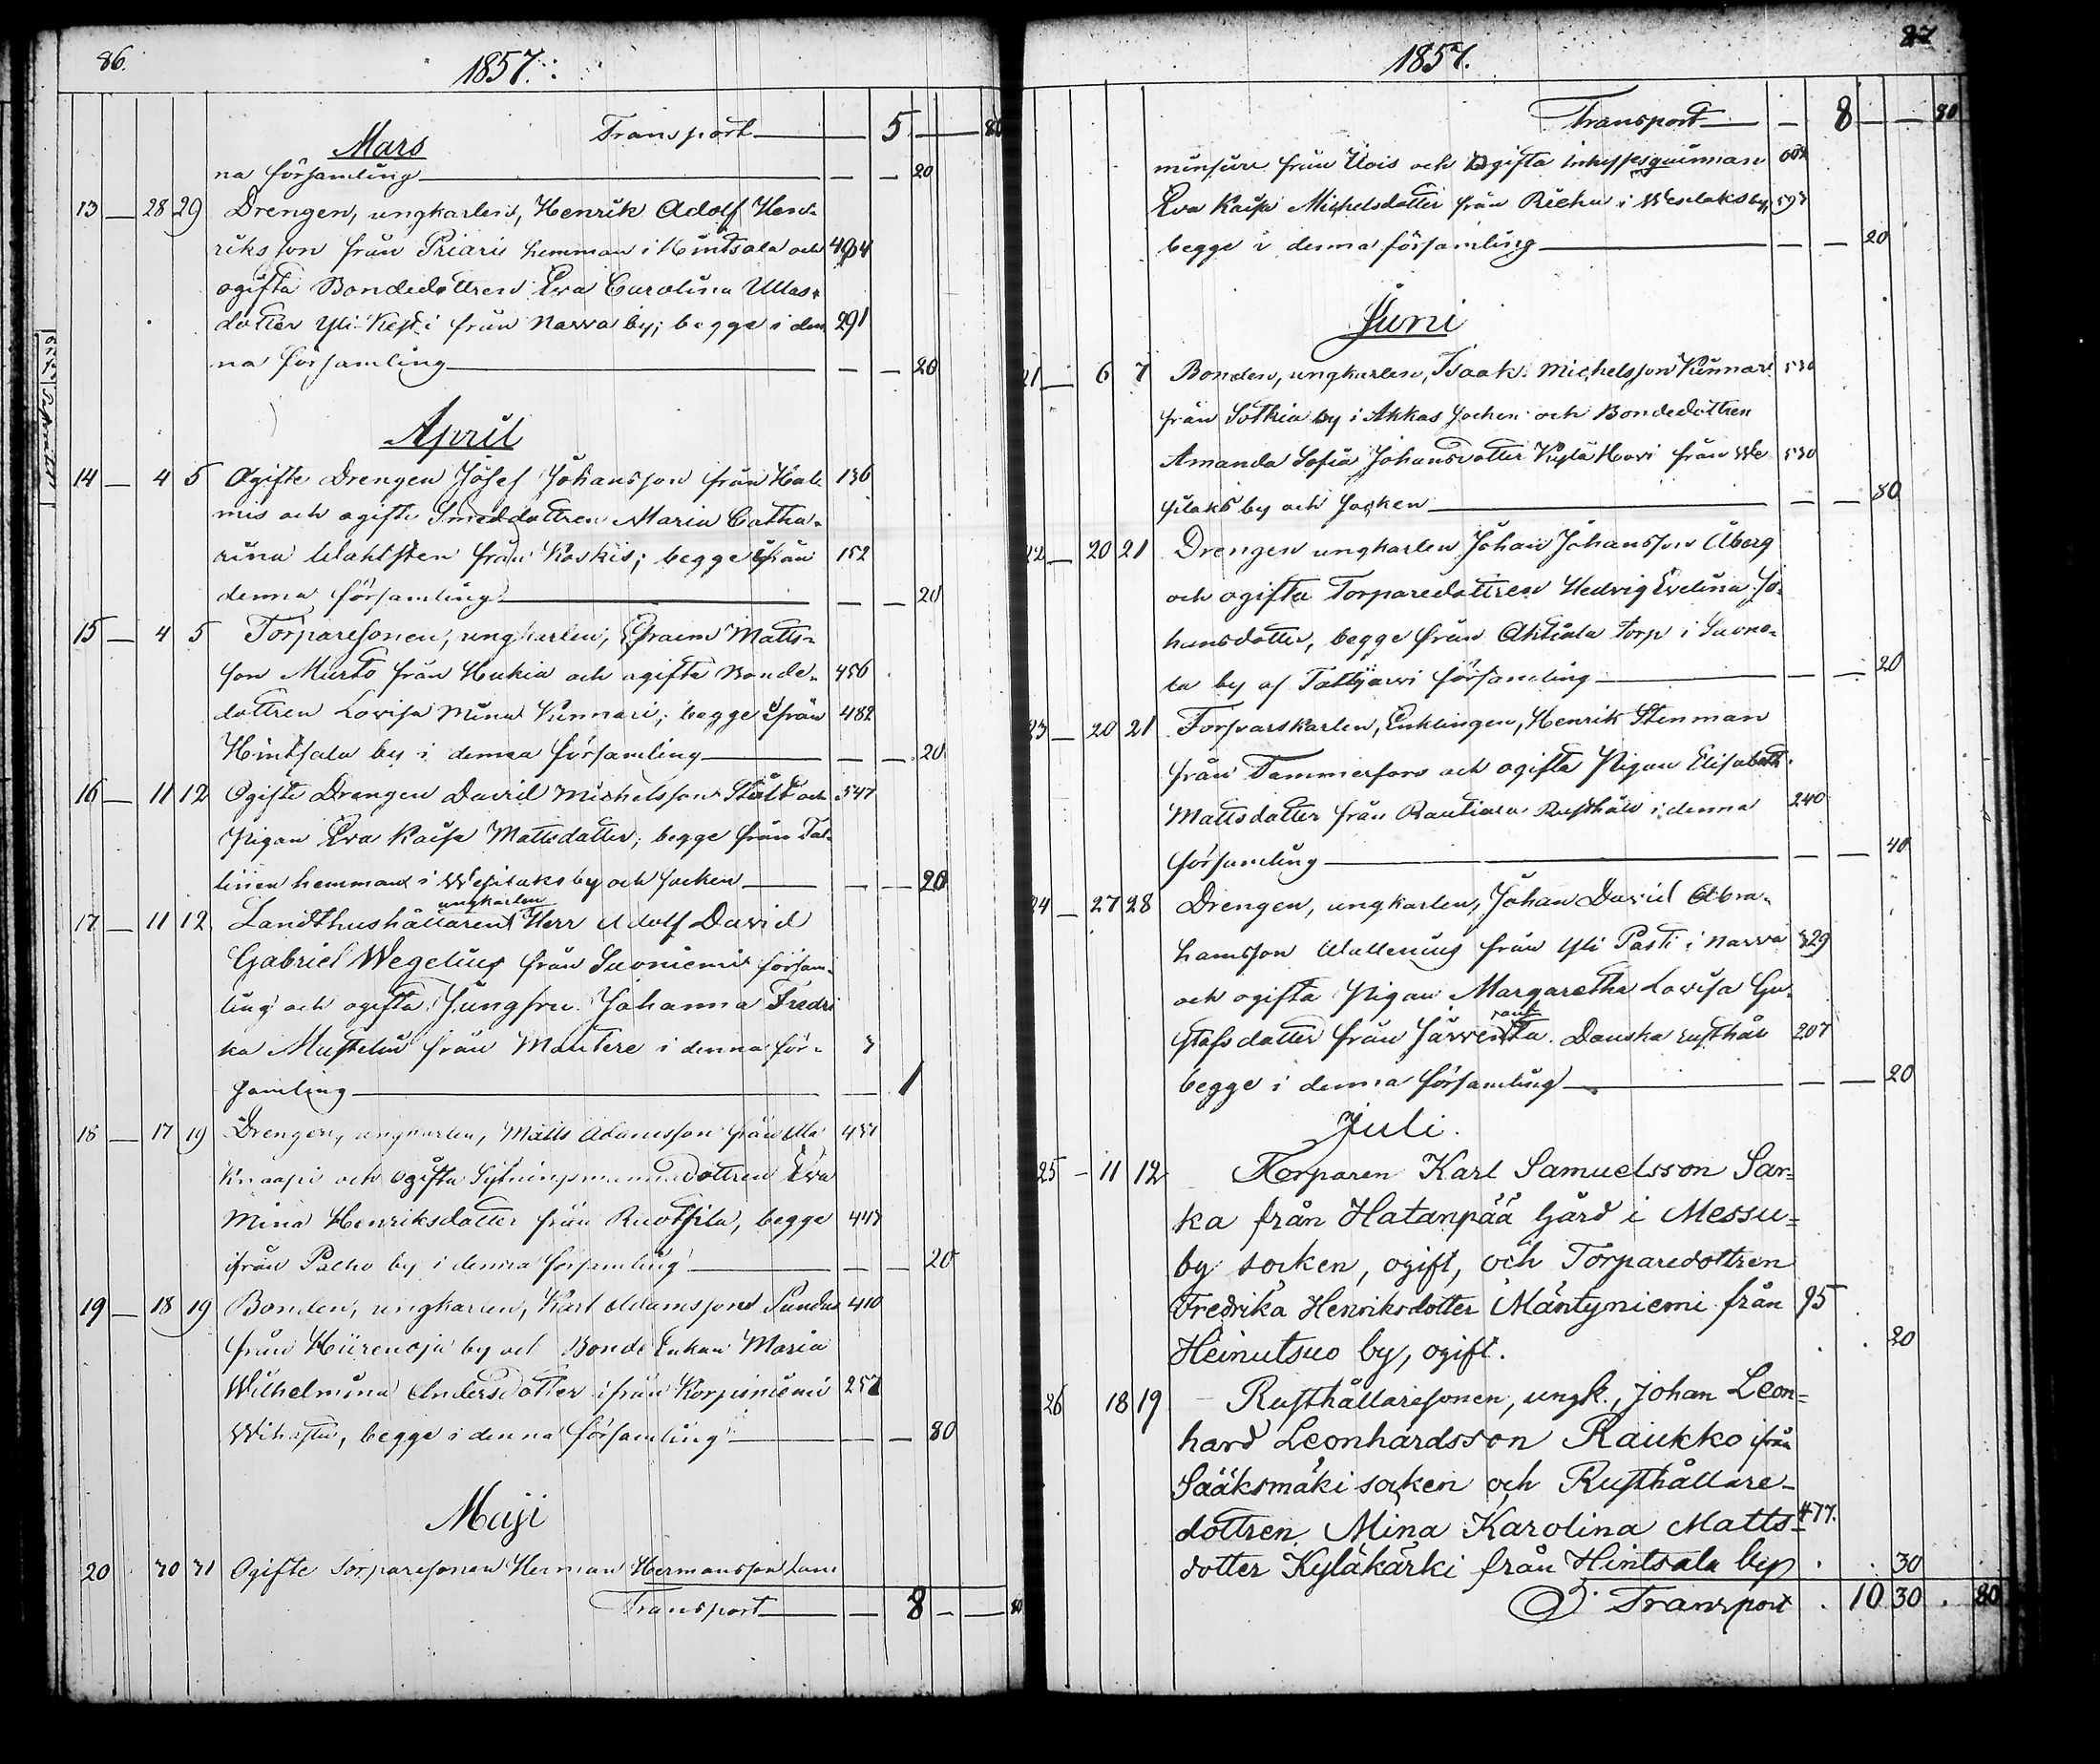 86.
1857.
Transport — — 5 — — 80
Mars
na församling — — — 20
13 — 28 29 Drengen, ungkarlen, Henrik Adolf Hen-
riksson från Priari hemman i Hintsala och 494
ogifta Bondedottren Eva Carolina Matts-
dotter Yli Kesti från Narva by; begge i den 291
na församling — — — 20
April
14 — 4 5 Ogifte Drengen Josef Johansson från Hali 136
mis och ogifta Smeddottren Maria Catha-
rina Wahlsten från Koskis; begge ifrån 152
denna församling — — — 20
15 — 4 5 Torparesonen, ungkarlen, Efraem Matts-
son Murto från Hukia och ogifta Bonde- 456
dottren Lovisa Mina Kunnari; begge ifrån 482
Hintsala by i denna församling — — — 20
16 — 11 12 Ogifte Drengen David Michelsson Stålt och 547
Pigan Eva Kaisa Mattsdotter; begge från Tal-
hemman i Wesilaks by och socken — — — 20
ungkarlen
17 — 11 12 Landthushållaren Herr Adolf David
Gabriel Wegelius från Suoniemi försam-
ling och ogifta Jungfru Johanna Fredri
ka Mustelin från Mantere i denna för- 3
samling — — 1
18 — 17 19 Drengen, ungkarlen, Matts Adamsson från Ala 451
Knaapi och ogifta Sytningsmansdottren Eva
Mina Henriksdotter från Ruotsila, begge 443
ifrån Palho by i denna församling — — — 20
19 — 18 19 Bonden, ungkarlen, Karl Adamsson Pundus 410
från Hiirenoja by och Bonde Enkan Maria
Wilhelmina Andersdotter ifrån Korpiniemi 257
begge i denna församling — — — 80
Maji
20 30 31 Ogifte Torparesonen Herman Hermansson Lam
Transport — — 8 — — 80
87
1857.
Transport — — 8 — — 80
minsure från Uois och Ogifta Inhyssqvinnan 602
Eva Kaisa Michelsdotter från Riehu i Wesilaks by, 593
begge i denna församling — — — 20
Juni
21 — 6 7 Bonden, ungkarlen, Isaak Michelsson Kunnari 530
från Sotkia by i Akkas socken och Bondedottren
Amanda Sofia Johansdotter Kylä Hovi från We 530
silaks by och socken — — — 80
22 — 20 21 Drengen ungkarlen Johan Johansson Åberg
och ogifta Torparedottren Hedvig Evelina Jo-
hansdotter, begge från Ahtiala torp i Savno-
la by af Tottijärvi församling — — — 20
23 — 20 21 Forsvarskarlen, Enklingen, Henrik Stenman
från Tammerfors och ogifta Pigan Elisabeth
Mattsdotter från Rautiala Rusthåll i denna 240
församling — — — 40
24 — 27 28 Drengen, ungkarlen, Johan David Abra-
hamsson Wallenius från Yli Pasti i Narva 329
och ogifta Pigan Margaretha Lovisa Gu-
stafsdotter från Järvenranta Danska rusthåll 207
begge i denna församling — — — 20
Juli.
25 – 11 12 Torparen Karl Samuelsson Sar=
ka från Hatanpää Gård i Messu=
by socken, ogift, och Torparedottren
Fredrika Henriksdotter Mäntyniemi från 95
Heinutsuo by, ogift. . . 20
26 18 19 Rusthållaresonen, ungk., Johan Leon=
hard Leonhardsson Raukko ifrån
Sääksmäki socken och Rusthållare-
dottren Mina Karolina Matts= 477.
dotter Kyläkärki från Hintsala by . . 30
Transport . 10 30 . 80